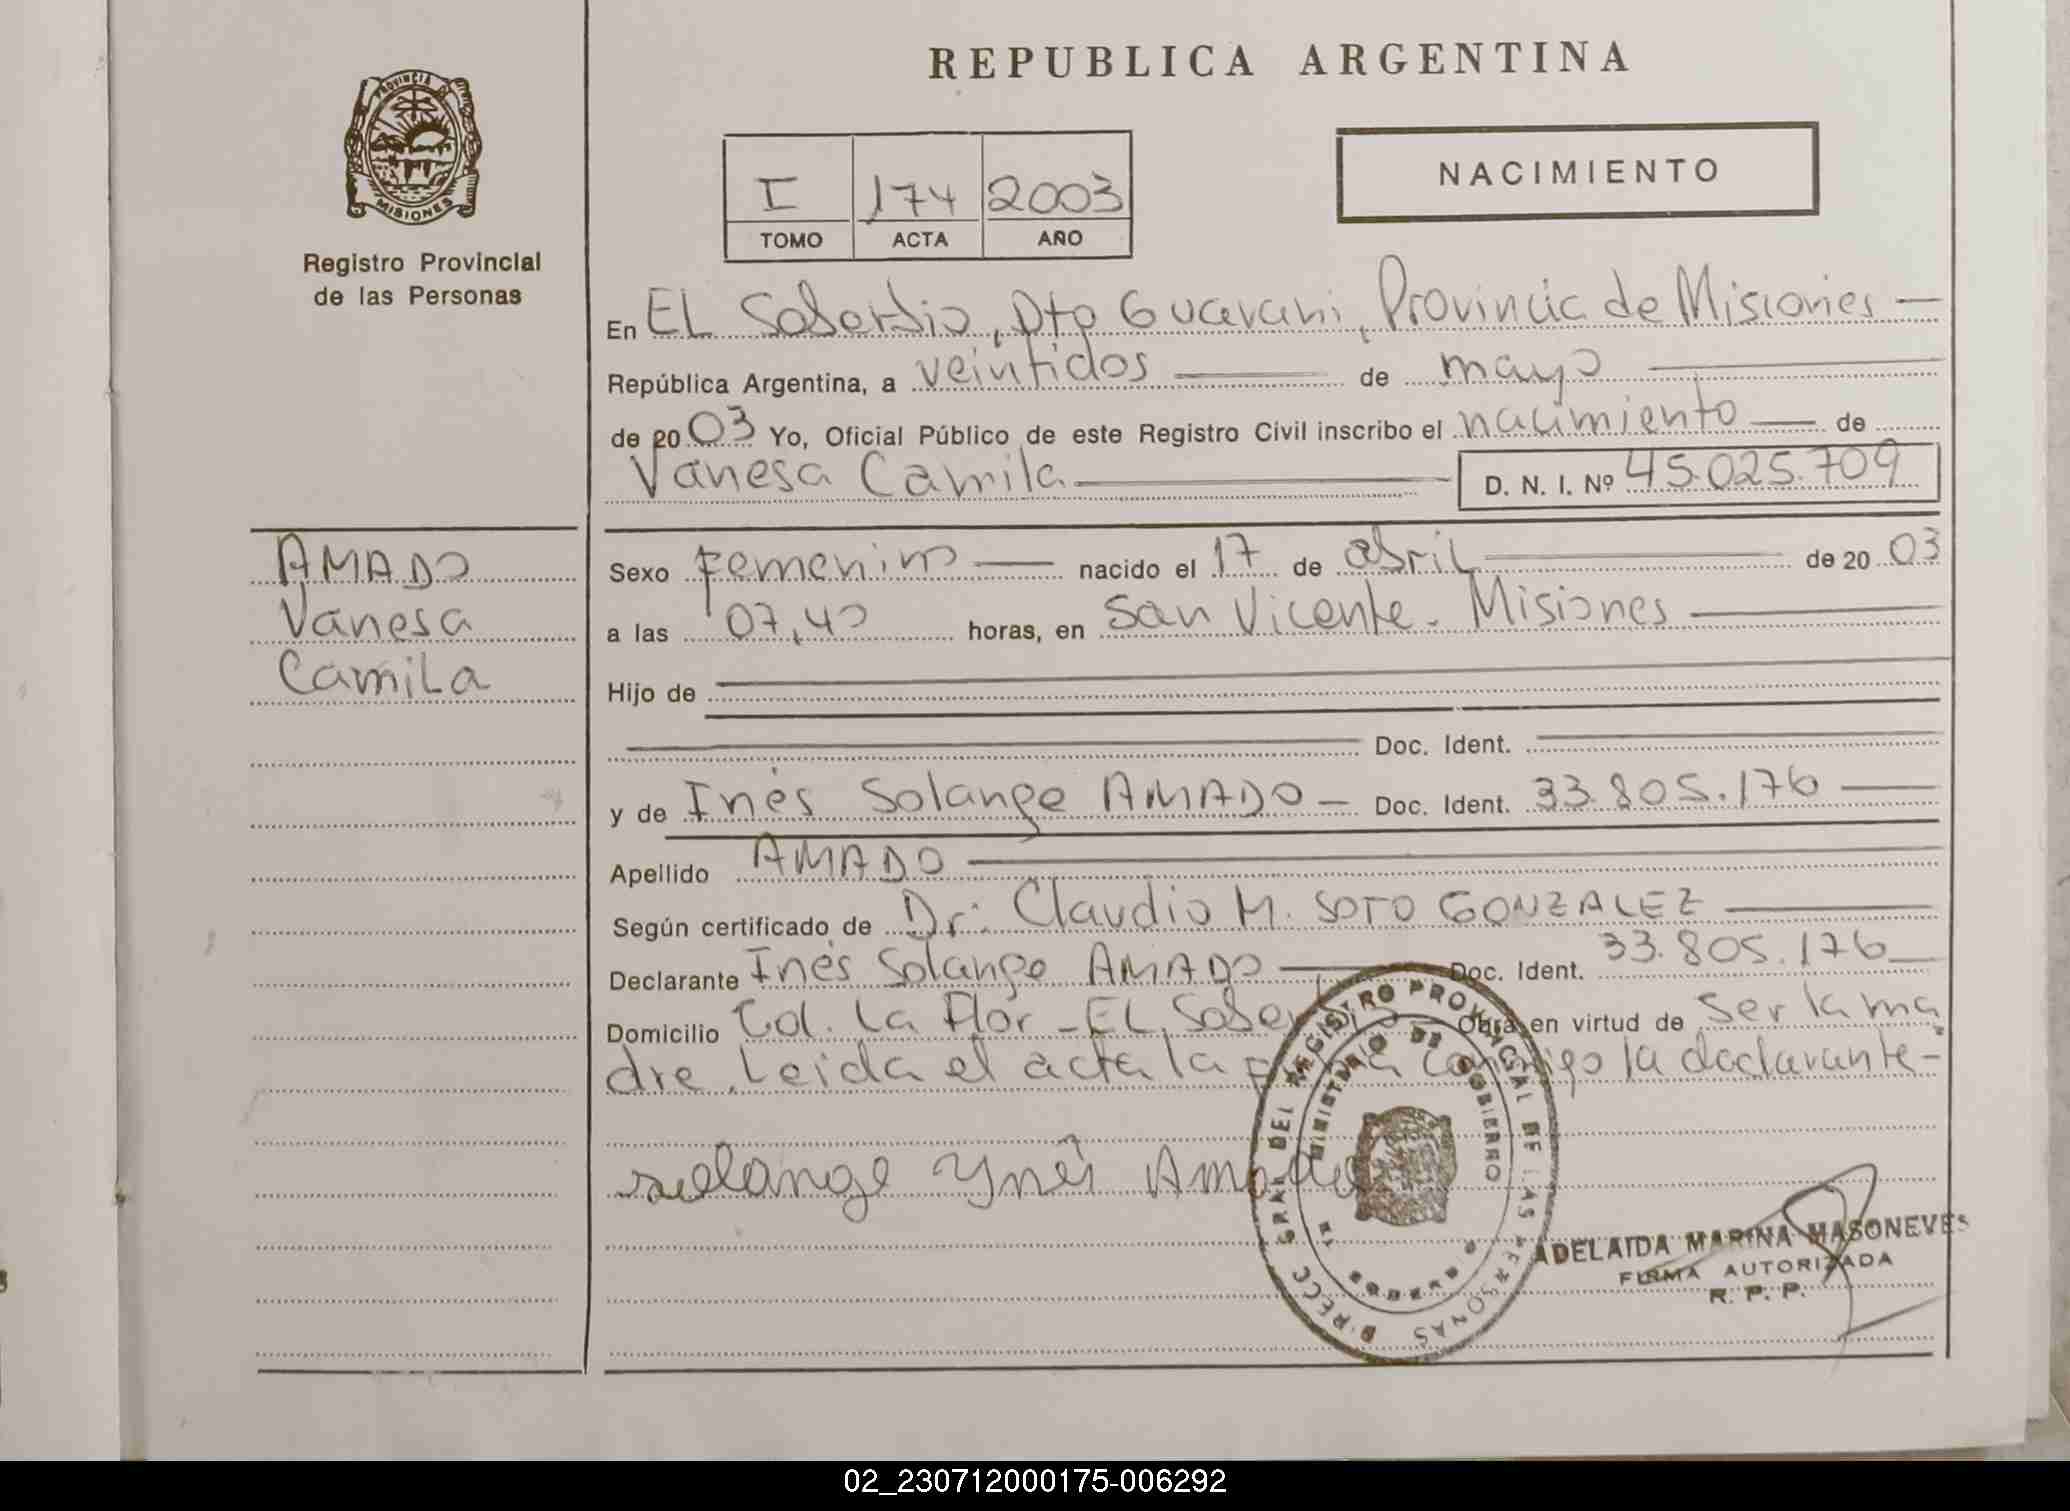 PROVINCIA DE
MISIONES
Registro Provincial
de las Personas
REPUBLICA ARGENTINA
I 174 2003
TOMO ACTA AÑO
NACIMIENTO
En EL Soberbio, Dto Guarani, Provincia de Misiones —
República Argentina, a veintidos — de mayo —
de 2003 Yo, Oficial Público de este Registro Civil inscribo el nacimiento — de
Vanesa Camila — D. N. I. Nº 45.025.709
AMADO
Vanesa
Camila
Sexo Femenino — nacido el 17 de abril — de 2003
a las 07,40 horas, en San Vicente - Misiones —
Hijo de —
— Doc. Ident. —
y de Inés Solange AMADO — Doc. Ident. 33.805.176 —
Apellido AMADO —
Según certificado de Dr. Claudio M. SOTO GONZALEZ —
Declarante Inés Solange AMADO — Doc. Ident. 33.805.176 —
Domicilio Col. La Flor - EL Sober Obra en virtud de ser la ma
dre. Leida el acta la la declarante -
solange Ynés Amado
DIRECC GRAL DEL REGISTRO PROVINCIAL DE LAS PERSONAS
MINISTERIO DE GOBIERNO
ADELAIDA MARINA MASONEVES
FIRMA AUTORIZADA
R. P. P.
02_230712000175-006292